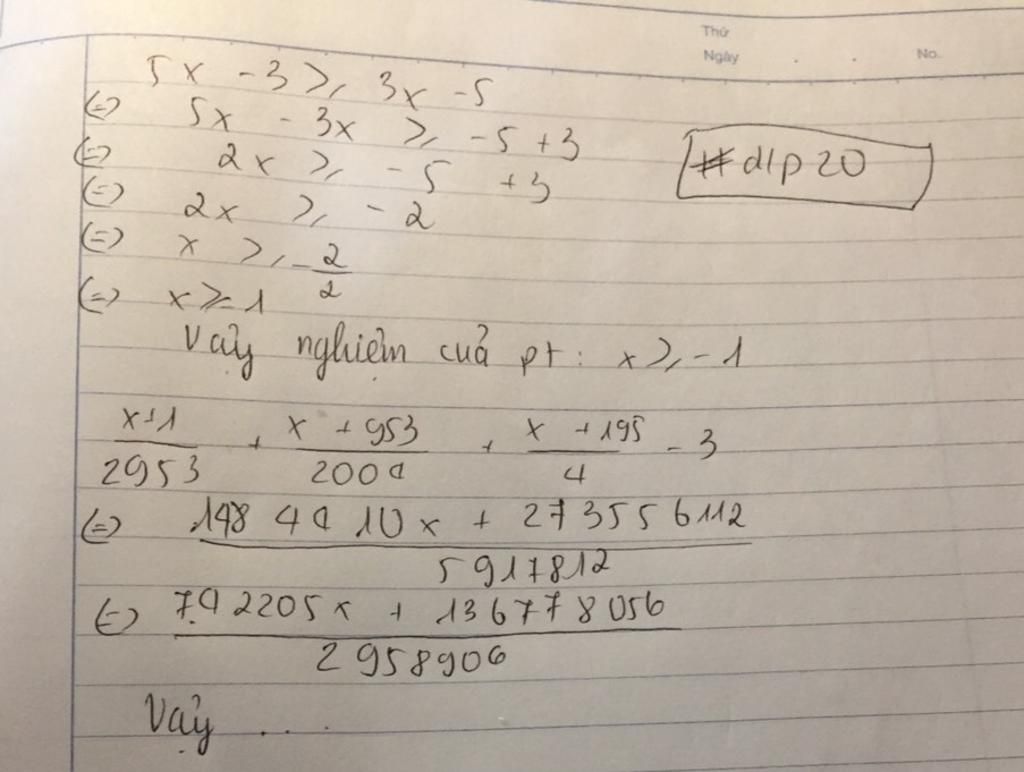 Thứ
Ngày . . No.
5x - 3 ≥ 3x - 5
(=) 5x - 3x ≥ -5 + 3
(=) 2x ≥ -5 + 3
(=) 2x ≥ -2
(=) x ≥ -2/2
(=) x ≥ -1
#dlp20
Vậy nghiệm của pt: x ≥ -1
x+1/2953 + x+953/2004 + x+195/4 - 3
(=) 1484410x + 273556112/5917812
(=) 742205x + 136778056/2958906
Vậy ...